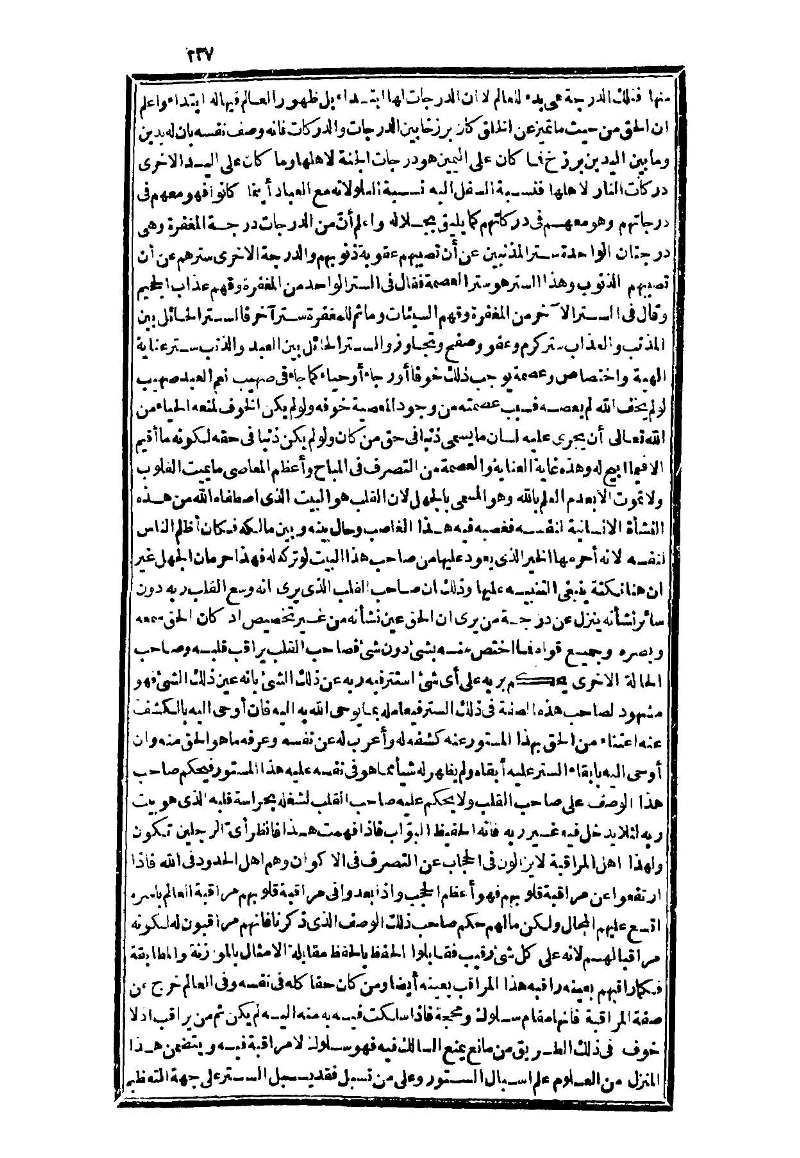 ٢٣٧
منها فتلك الدرجة هي بدء للعالم لا أن الدرجات لها ابتداء بل ظهور العالم فيها له ابتداء واعلم
ان الحق من حيث ما تميز عن الخلق كان برزخا بين الدرجات والدركات فانه وصف نفسه بان له يدين
وما بين اليدين برزخ فما كان على اليمين هو درجات الجنة لاهلها وما كان على اليد الاخرى
دركات النار لاهلها فنسبة السفل اليه نسبة العلو لانه مع العباد أينما كانوا فهو معهم فى
درجاتهم وهو معهم فى دركاتهم كما يليق بجلاله واعلم أن من الدرجات درجة المغفرة وهى
درجتان الواحدة ستر المذنبين عن أن تصيبهم عقوبة ذنوبهم والدرجة الاخرى سترهم عن أن
تصيبهم الذنوب وهذا الستر هو ستر العصمة فقال فى الستر الواحد من المغفرة وقهم عذاب الجحيم
وقال فى الستر الآخر من المغفرة وقهم السيئات وما ثم للمغفرة ستر آخر فالستر الحائل بين
المذنب والعذاب ستر كرم وعفو وصفح وتجاوز والستر الحائل بين العبد والذنب ستر عناية
الهية واختصاص وعصمة يوجب ذلك خوفا أو رجاء أو حياء كما جاء فى صهيب نعم العبد صهيب
لو لم يخف الله لم يعصه فسبب عصمته من وجود المعصية خوفه ولو لم يكن الخوف لمنعه الحياء من
الله تعالى أن يجرى عليه لسان ما يسمى ذنبا فى حق من كان ولو لم يكن ذنبا فى حقه لكونه ما أقيم
الا فيما ابيح له وهذه غاية العناية والعصمة من التصرف فى المباح وأعظم المعاصى ما يميت القلوب
ولا تموت الا بعدم العلم بالله وهو المسمى بالجهل لان القلب هو البيت الذى اصطفاه الله من هذه
النشأة الانسانية لنفسه فغصبه فيه هذا الغاصب وحال بينه وبين مالكه فكان أظلم الناس
لنفسه لانه أحرمها الخير الذى يعود عليها من صاحب هذا البيت لو تركه له فهذا حرمان الجهل غير
ان هنا نكتة ينبغى التنبيه عليها وذلك ان صاحب القلب الذى يرى انه وسع القلب ربه دون
سائر نشأته ينزل عن درجة من يرى ان الحق عين نشأته من غير تخصيص اذ كان الحق سمعه
وبصره وجميع قواه فما اختص منه بشئ دون شئ فصاحب القلب يراقب قلبه وصاحب
الحالة الاخرى يحكم بربه على أى شئ استتر فيه ربه عن ذلك الشئ بانه عين ذلك الشئ فهو
مشهود لصاحب هذه الصفة فى ذلك الستر فيعامله بما يوحى الله به اليه فان أوحى اليه بالكشف
عنه اعتناء من الحق بهذا المستور عنه كشفه له وأعرب له عن نفسه وعرفه ما هو الحق منه وان
أوحى اليه بابقاء الستر عليه أبقاه ولم يظهر له شيأ مما هو فى نفسه عليه هذا المستور فيحكم صاحب
هذا الوصف على صاحب القلب ولا يحكم عليه صاحب القلب لشغله بحراسة قلبه الذى هو بيت
ربه لئلا يدخل فيه غير ربه فانه الحفيظ البواب فاذا فهمت هذا فانظر أى الرجلين تكون
ولهذا اهل المراقبة لا يزالون فى الحجاب عن التصرف فى الاكوان وهم اهل الحدود فى الله فاذا
ارتفعوا عن مراقبة قلوبهم فهو أعظم الحجب واذا بعدوا فى مراقبة قلوبهم مراقبة العالم باسره
اتسع عليهم المجال ولكن ما لهم حكم صاحب ذلك الوصف الذى ذكرنا فانهم مراقبون له لكونه
مراقبا لهم لانه على كل شئ رقيب فقابلوا الحفظ بالحفظ مقابلة الامثال بالموزنة والمطابقة
فكما راقبهم بعينه راقبه هذا المراقب بعينه أيضا ومن كان حقا كله فى نفسه وفى العالم خرج عن
صفة المراقبة فانها مقام سلوك ومحجة فاذا سلكت فيه به منه اليه لم يكن ثم من يراقب اذ لا
خوف فى ذلك الطريق من مانع يمنع السالك فيه فهو سلوك لا مراقبة فيه ويتضمن هذا
المنزل من العلوم علم اسبال الستور وعلى من تسبل فقد يسبل الستر على جهة التعظيم